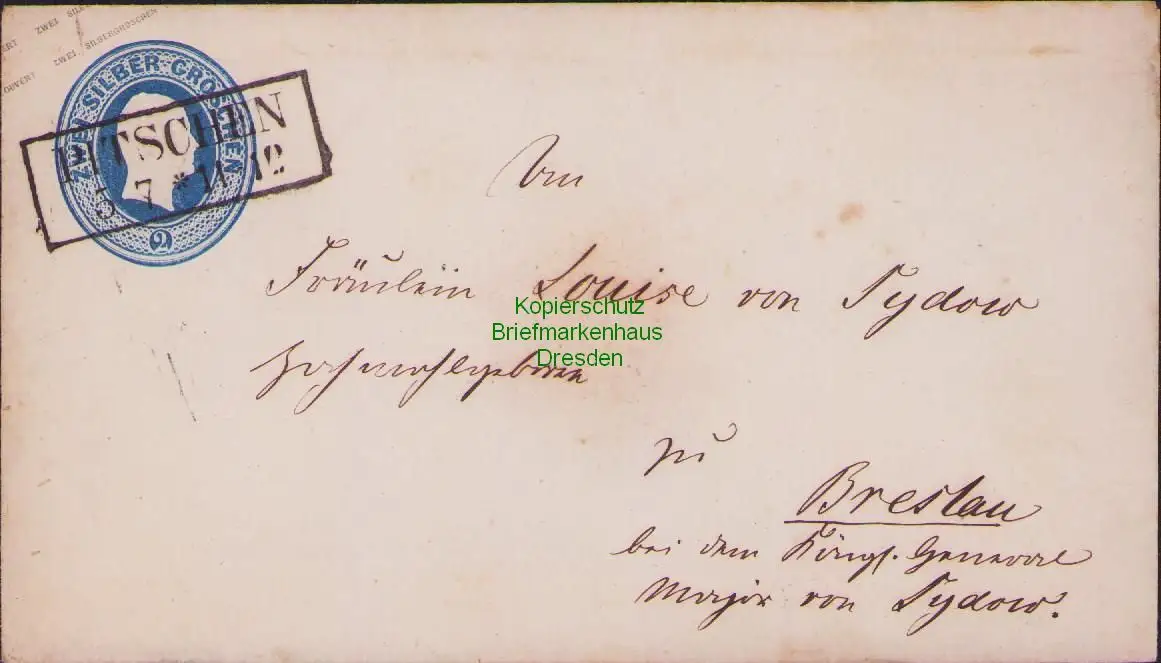 OUVERT ZWEI SILBERGROSCHEN
ZWEI SILBER-GROSCHEN
2
PITSCHEN
5 7 * 11-12
An
Fräulein Louise von Sydow
Hochwohlgeboren
zu
Breslau
bei dem Königl. General
Major von Sydow.
Kopierschutz
Briefmarkenhaus
Dresden